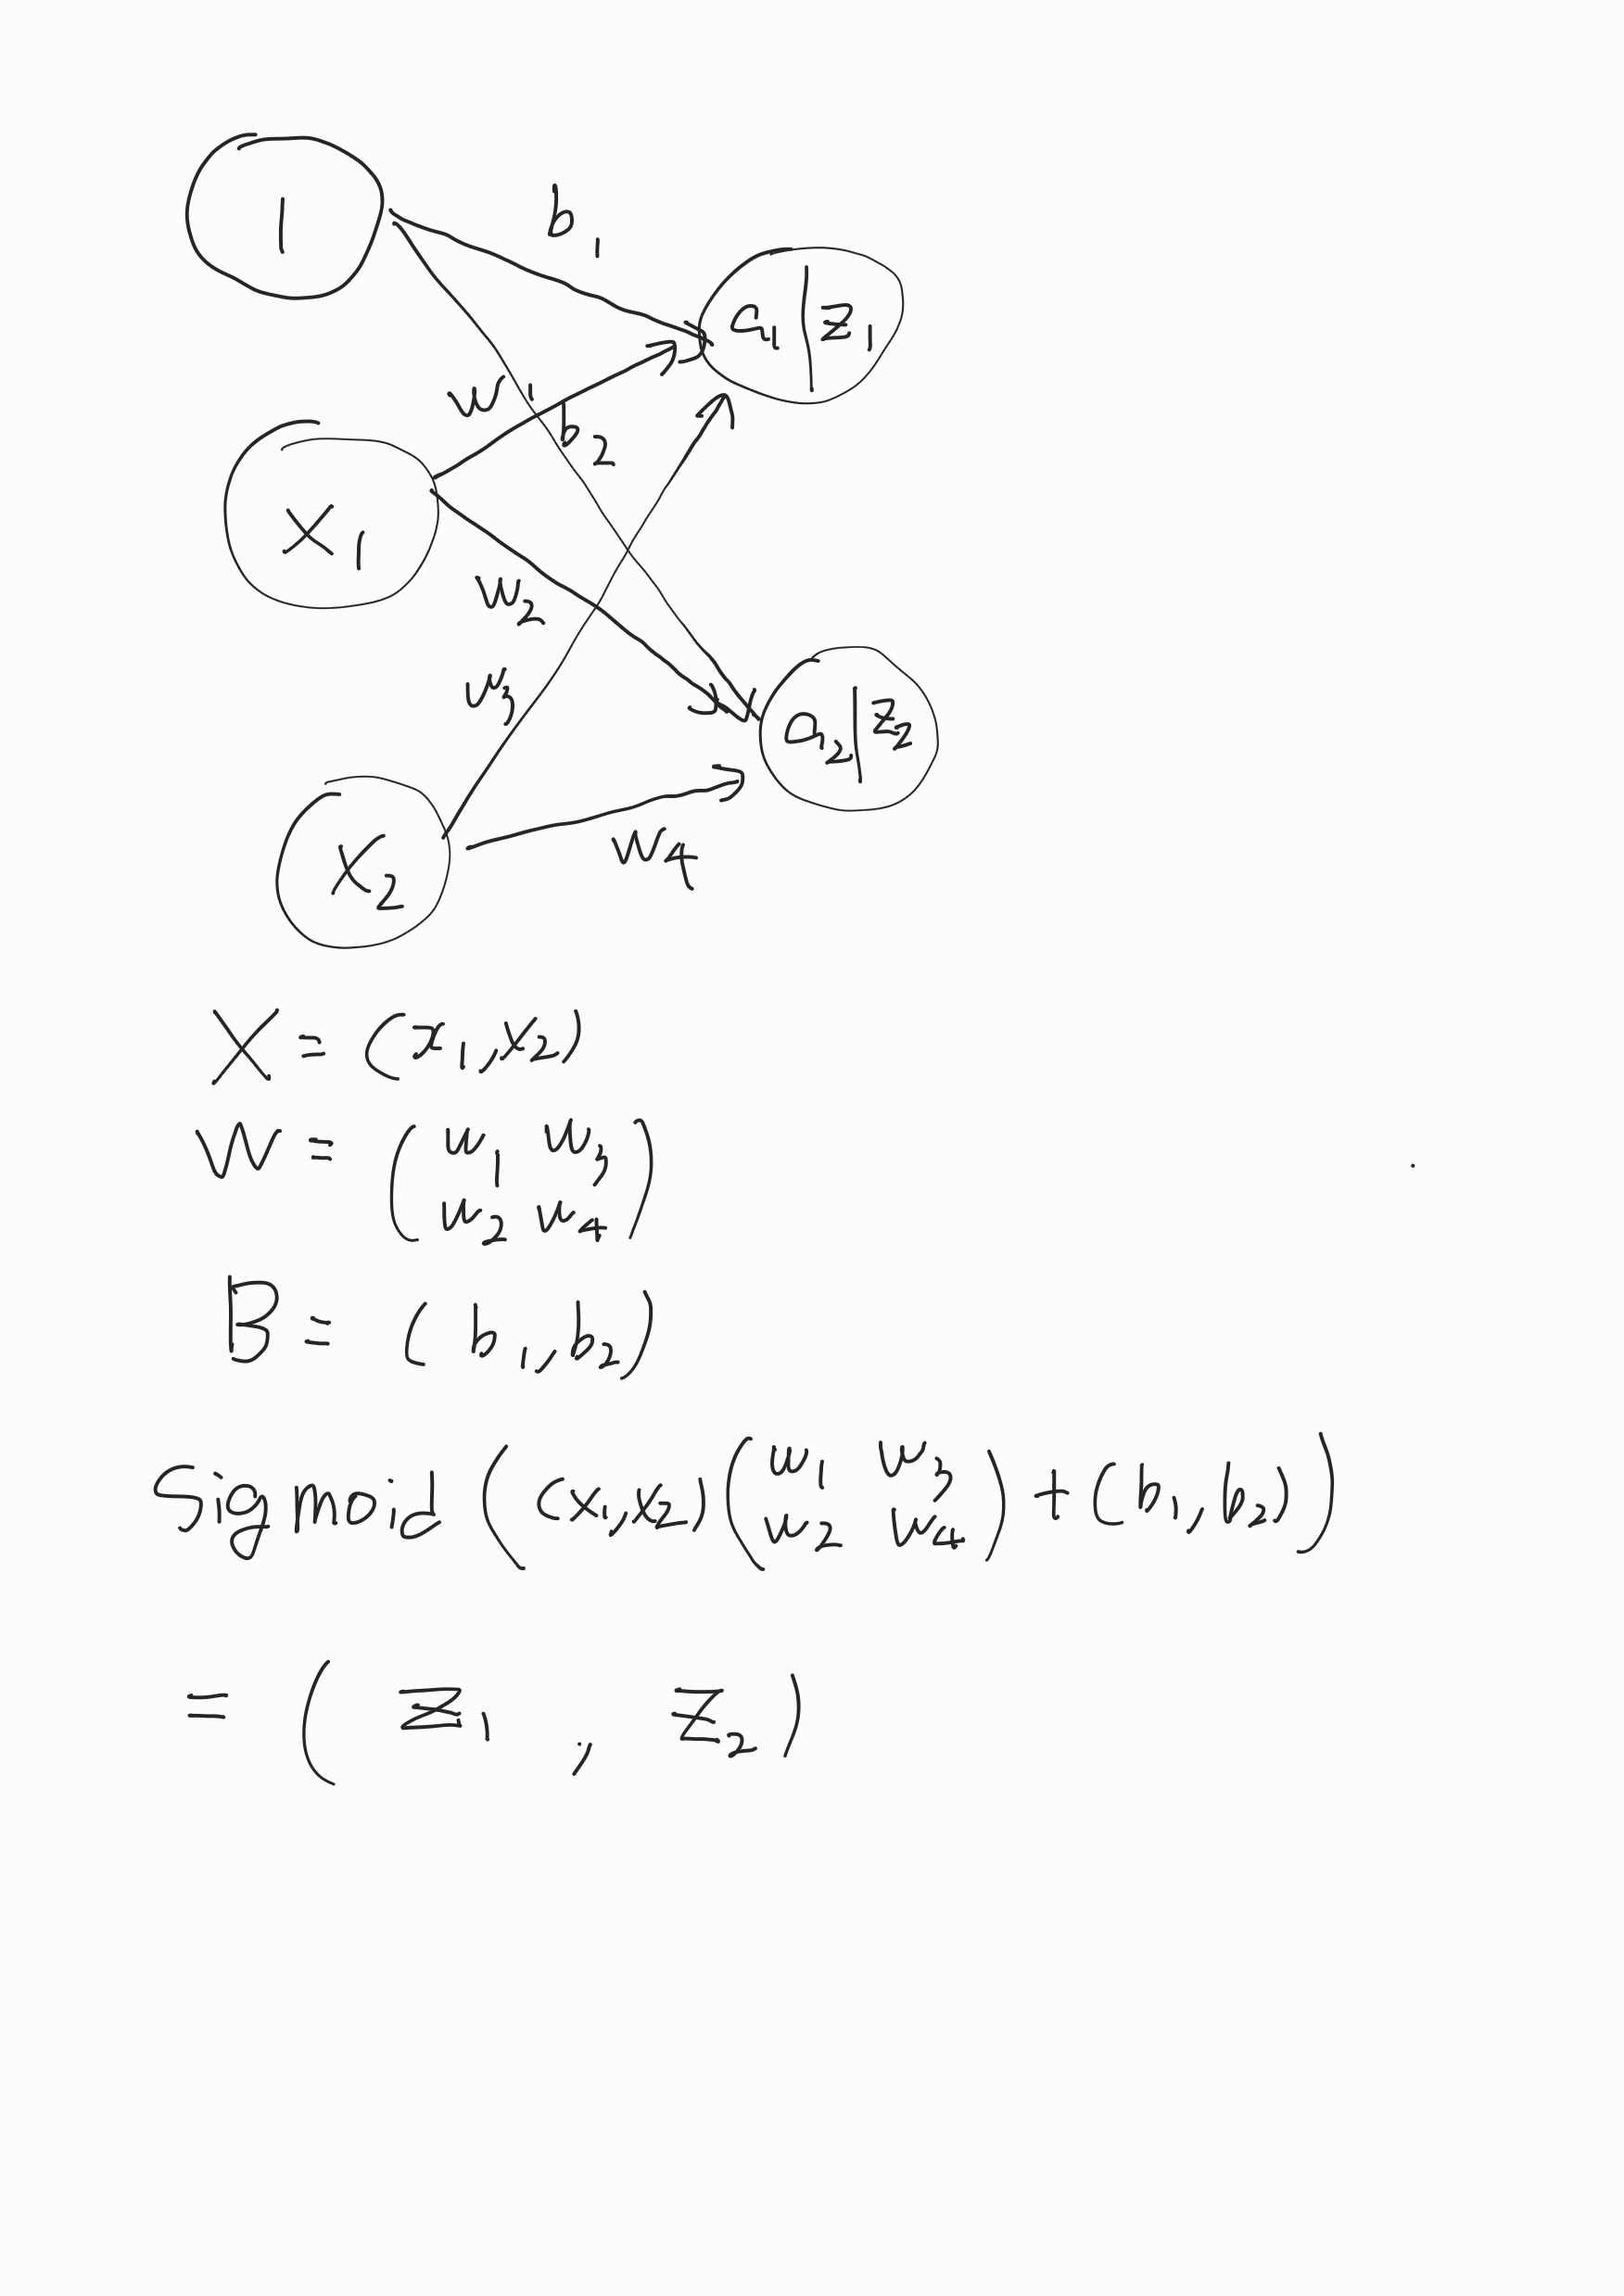 1
b1
a1 | z1
w1
b2
x1
w2
w3
a2 | z2
x2
w4
X = (x1, x2)
W = ( w1 w3
w2 w4 )
B = ( b1, b2 )
Sigmoid ( (x1, x2) ( w1 w3
w2 w4 ) + (b1, b2) )
= ( z1 , z2 )